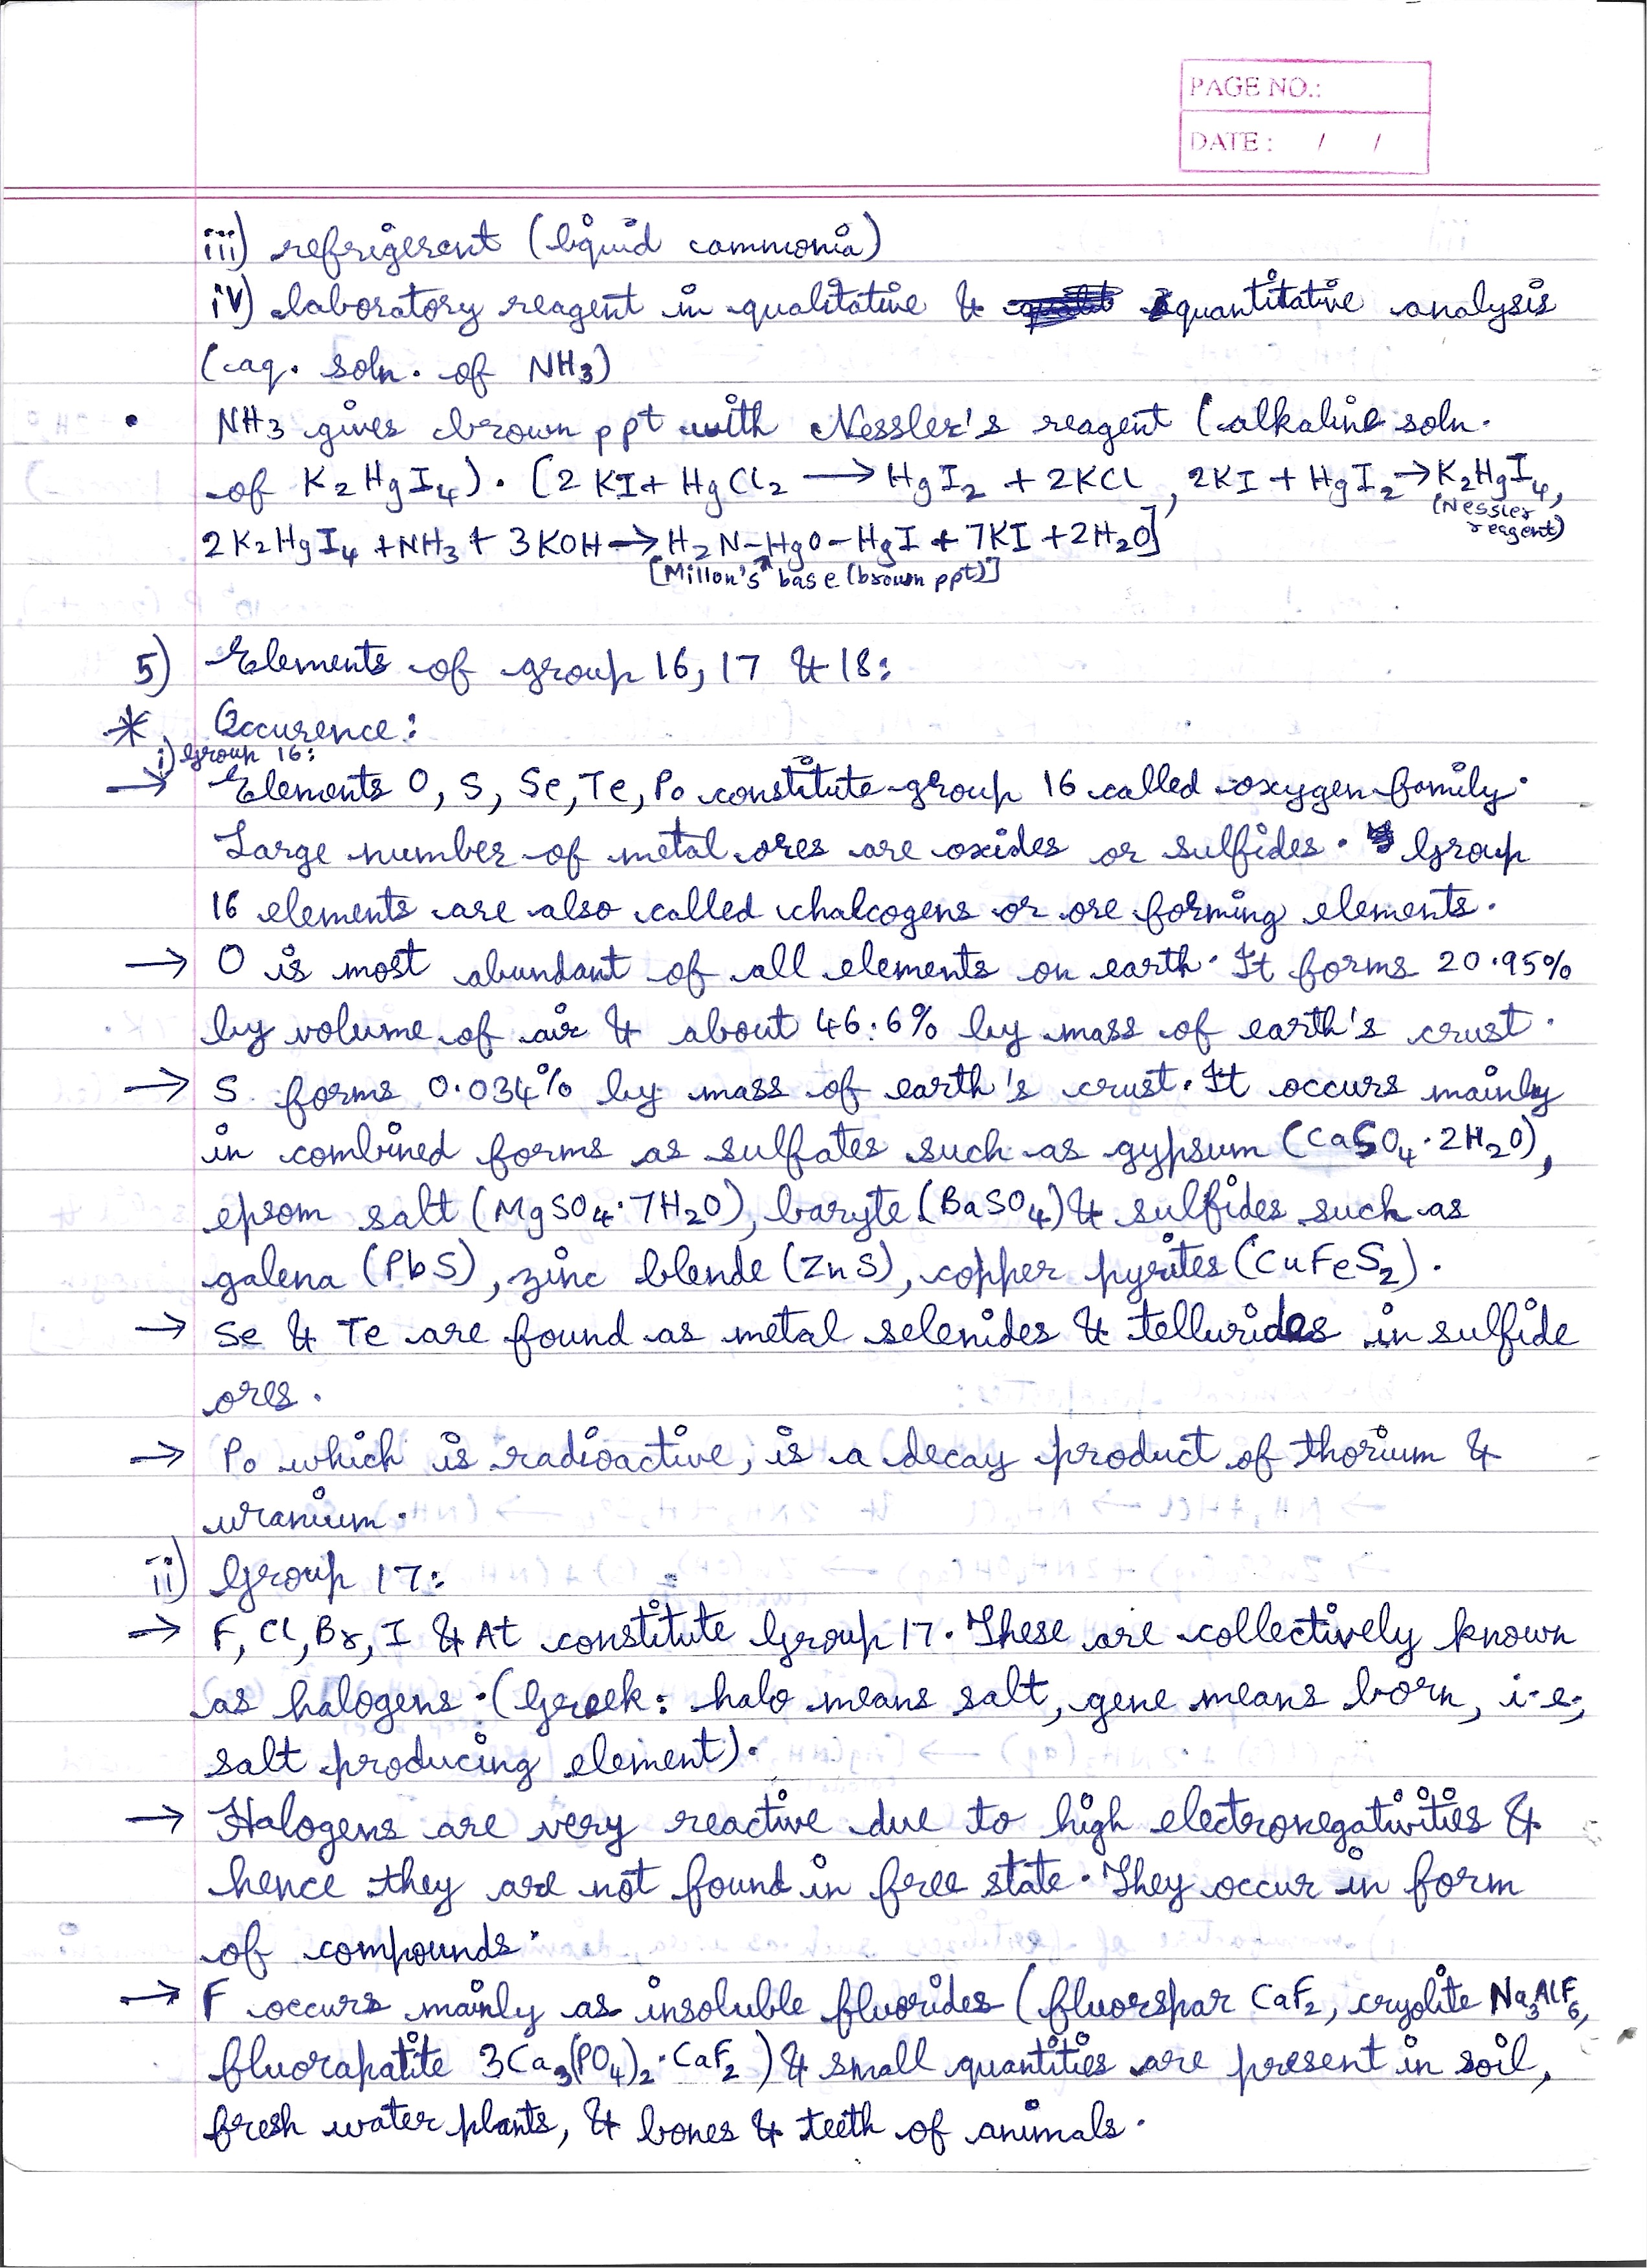 PAGE NO.:
DATE : / /
iii) refrigerent (liquid ammonia)
iv) laboratory reagent in qualitative & quantitative analysis
(aq. soln. of NH3)
• NH3 gives brown ppt with Nessler's reagent (alkaline soln.
of K2HgI4). [2KI + HgCl2 → HgI2 + 2KCl, 2KI + HgI2 → K2HgI4,
(Nessler
reagent)
2K2HgI4 + NH3 + 3KOH → H2N-HgO-HgI + 7KI + 2H2O]
[Millon's base (brown ppt)]
5) Elements of group 16, 17 & 18:
* Occurence:
i) Group 16:
→ Elements O, S, Se, Te, Po constitute group 16 called oxygen family.
Large number of metal ores are oxides or sulfides. Group
16 elements are also called chalcogens or ore forming elements.
→ O is most abundant of all elements on earth. It forms 20.95%
by volume of air & about 46.6% by mass of earth's crust.
→ S forms 0.034% by mass of earth's crust. It occurs mainly
in combined forms as sulfates such as gypsum (CaSO4·2H2O),
epsom salt (MgSO4·7H2O), baryte (BaSO4) & sulfides such as
galena (PbS), zinc blende (ZnS), copper pyrites (CuFeS2).
→ Se & Te are found as metal selenides & tellurides in sulfide
ores.
→ Po which is radioactive, is a decay product of thorium &
uranium.
ii) Group 17:
→ F, Cl, Br, I & At constitute Group 17. These are collectively known
as halogens. (Greek: halo means salt, gene means born, i.e.,
salt producing element).
→ Halogens are very reactive due to high electronegativities &
hence they are not found in free state. They occur in form
of compounds.
→ F occurs mainly as insoluble fluorides (fluorspar CaF2, cryolite Na3AlF6,
fluorapatite 3Ca3(PO4)2·CaF2) & small quantities are present in soil,
fresh water plants, & bones & teeth of animals.